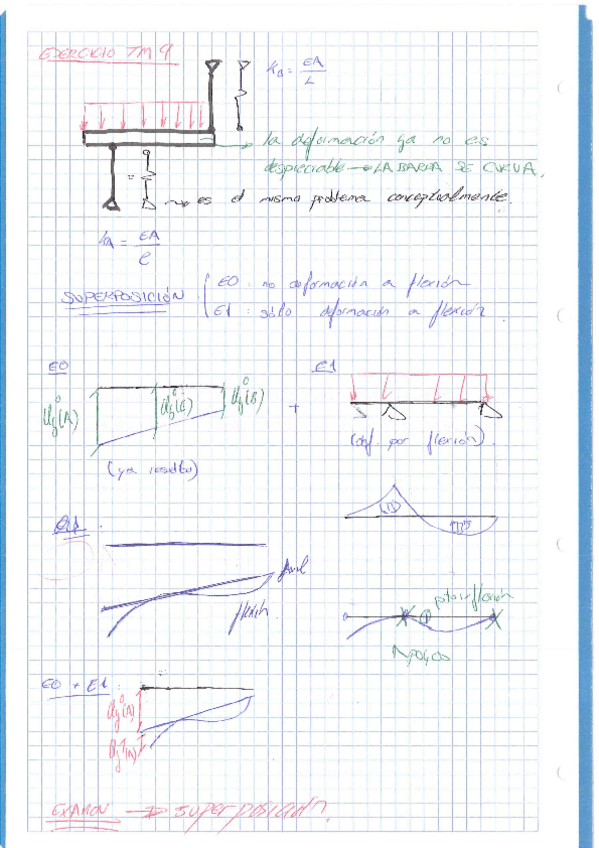 EJERCICIO TM 9
K_B = EA/L
la deformación ya no es
despreciable → LA BARRA SE CURVA.
= → es el mismo problema conceptualmente.
K_A = EA/l
SUPERPOSICIÓN { E0: no deformación a flexión
E1: sólo deformación a flexión.
E0
E1
U_y^0(A)
U_y^0(C)
U_y^0(B)
+
(def. por flexión).
(ya resuelto)
pto inflexión
flexión
Apoyos
E0 + E1:
U_y^0(A)
U_y^1(A)
EXAMEN → superposición.